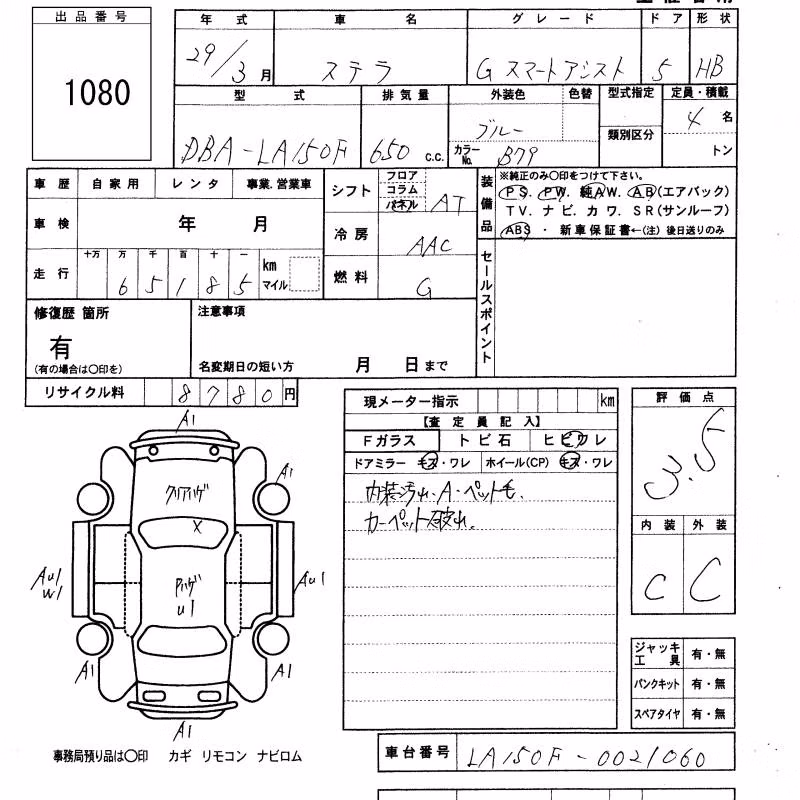 出品番号
1080
年式 車名 グレード ドア 形状
29/3月 ステラ G スマートアシスト 5 HB
型式 排気量 外装色 色替 型式指定 定員・積載
DBA-LA150F 650 c.c. ブルー 類別区分 4 名
カラーNo. B79 トン
車歴 自家用 レンタ 事業.営業車
車検 年 月
走行 十万 万 千 百 十 一
6 5 1 8 5 km マイル
シフト フロア コラム パネル AT
冷房 AAC
燃料 G
装備品 ※純正のみ〇印をつけて下さい。
PS. PW. 純AW. AB(エアバック)
TV. ナビ. カワ. SR(サンルーフ)
ABS ・ 新車保証書←(注) 後日送りのみ
セールスポイント
修復歴 箇所
有
(有の場合は〇印を)
注意事項
名変期日の短い方 月 日まで
リサイクル料 8780 円
現メーター指示 km
【査定員記入】
Fガラス トビ石 ヒビワレ
ドアミラー キズ・ワレ ホイール(CP) キズ・ワレ
内装汚れ・A・ペット毛.
カーペット破れ.
評価点
3.5
内装 外装
C C
ジャッキ工具 有・無
パンクキット 有・無
スペアタイヤ 有・無
A1
A1
クリアハゲ
X
AU1
W1
AU1
ハゲ
U1
A1
A1
A1
事務局預り品は〇印 カギ リモコン ナビロム
車台番号 LA150F-0021060